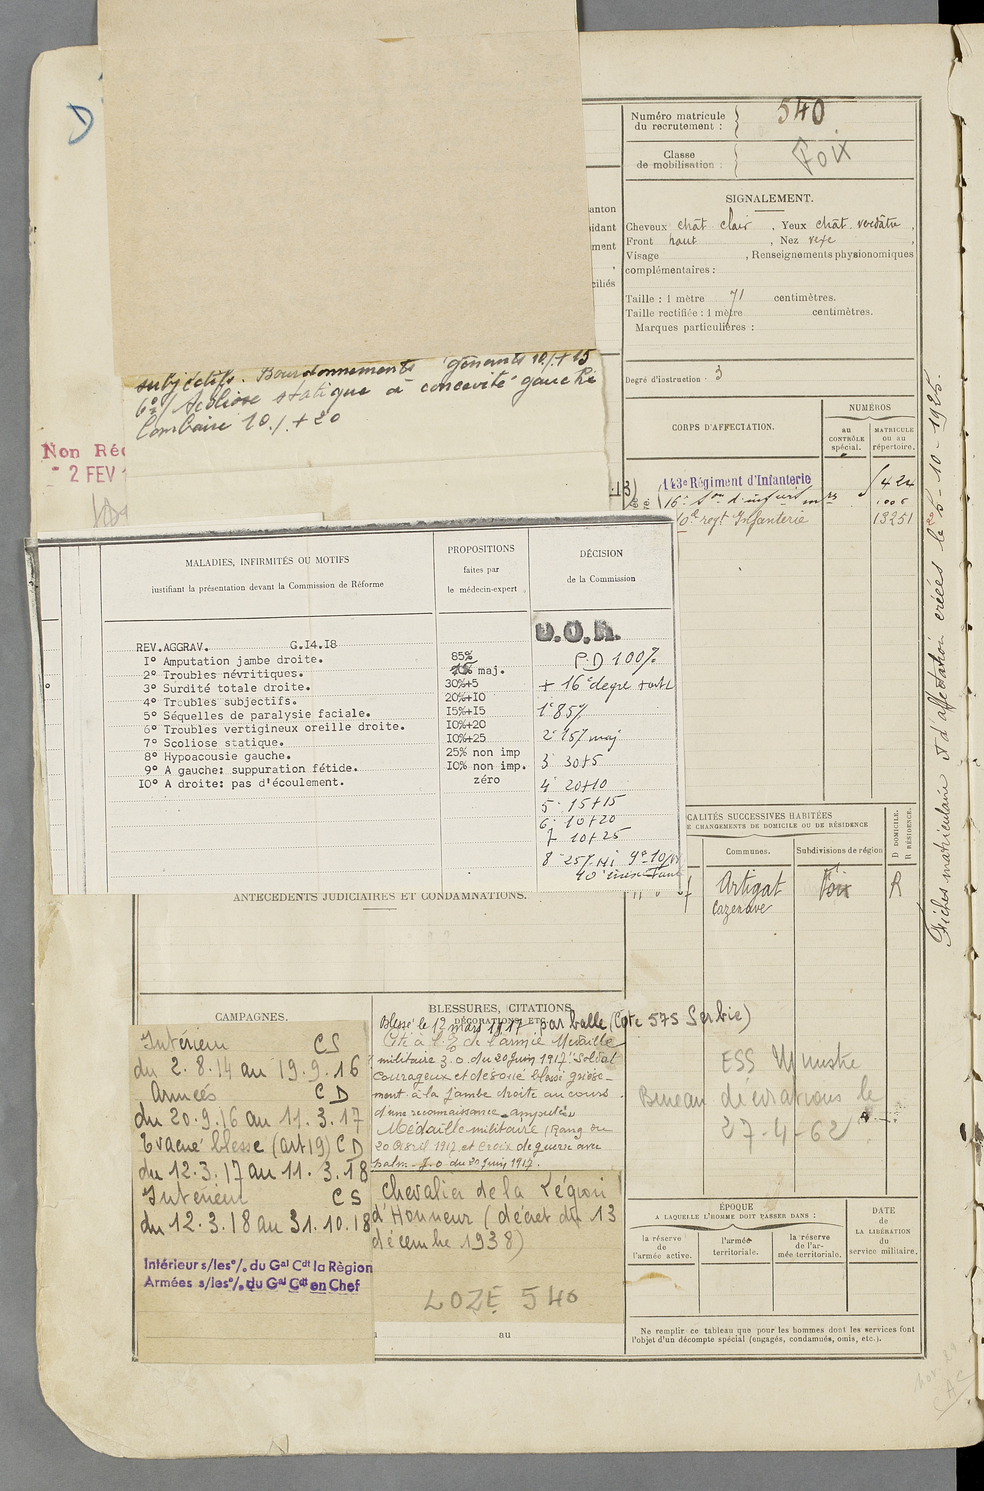 D
Numéro matricule
du recrutement :
540
Classe
de mobilisation :
Foix
SIGNALEMENT.
Cheveux chât clair , Yeux chât. verdâtre ,
Front haut , Nez vexe ,
Visage , Renseignements physionomiques
complémentaires :
Taille : 1 mètre 71 centimètres.
Taille rectifiée : 1 mètre centimètres.
Marques particulières :
Degré d'instruction . 3
anton
idant
ment
ciliés
subjectifs. Bourdonnements gênants 10% + 15
6°/ Scoliose statique à concavité gauche
Lombaire 10% + 20
Non Réc
- 2 FEV 1
CORPS D'AFFECTATION.
NUMÉROS
au
CONTRÔLE
spécial.
MATRICULE
ou au
répertoire.
143e Régiment d'Infanterie 424
16e Son d'infirm mres
regt Infanterie 13251
Fiches matriculaire et d'affectation créées le 5-10-1925.
MALADIES, INFIRMITÉS OU MOTIFS
justifiant la présentation devant la Commission de Réforme
PROPOSITIONS
faites par
le médecin-expert
DÉCISION
de la Commission
REV.AGGRAV. G.I4.I8
I° Amputation jambe droite.
2° Troubles névritiques.
3° Surdité totale droite.
4° Troubles subjectifs.
5° Séquelles de paralysie faciale.
6° Troubles vertigineux oreille droite.
7° Scoliose statique.
8° Hypoacousie gauche.
9° A gauche: suppuration fétide.
IO° A droite: pas d'écoulement.
85%
maj.
30%+5
20%+IO
I5%+I5
IO%+20
IO%+25
25% non imp
IO% non imp.
zéro
P.D 100%
+ 16° degré
1° 85%
2° 15% maj
3° 30+5
4° 20+10
5° 15+15
6° 10+20
7 10+25
8° 25% NI 9° 10%
CALITÉS SUCCESSIVES HABITÉES
E CHANGEMENTS DE DOMICILE OU DE RÉSIDENCE
Communes.
Subdivisions de région
D DOMICILE.
R RÉSIDENCE.
Artigat Foix R
Cazenave
ANTÉCÉDENTS JUDICIAIRES ET CONDAMNATIONS.
CAMPAGNES.
Intérieur CS
du 2.8.14 au 19.9.16
Armées CD
du 20.9.16 au 11.3.17
Evacué blessé (art 19) CD
du 12.3.17 au 11.3.18
Intérieur CS
du 12.3.18 au 31.10.18
Intérieur s/les°/. du Gal Cdt la Région
Armées s/les°/. du Gal Cdt en Chef
BLESSURES, CITATIONS,
DÉCORATIONS, ETC.
Blessé le 12 mars 1917 par balle (Cote 575 Serbie)
Cité à l'O de l'armée Médaille
militaire J.O. du 20 Juin 1917 "Soldat
courageux et dévoué blessé griève-
ment à la jambe droite au cours
d'une reconnaissance - amputé"
Médaille militaire (Rang du
20 Avril 1917 et croix de guerre avec
palme J.O du 20 Juin 1917.
Chevalier de la Légion
d'Honneur (décret du 13
décembre 1938)
LOZE 540
au
ESS Ministre
Bureau décorations le
27-4-62
ÉPOQUE
A LAQUELLE L'HOMME DOIT PASSER DANS :
la réserve
de
l'armée active.
l'armée
territoriale.
la réserve
de l'ar-
mée territoriale.
DATE
de
LA LIBÉRATION
du
service militaire.
Ne remplir ce tableau que pour les hommes dont les services font
l'objet d'un décompte spécial (engagés, condamnés, omis, etc.).